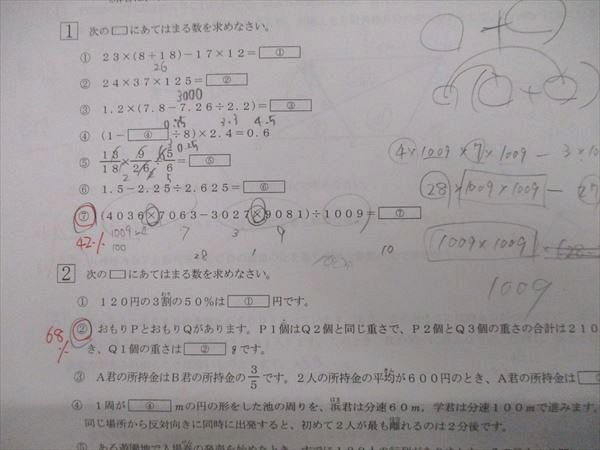 1 次の□にあてはまる数を求めなさい。
① 23×(8+18)-17×12= ①
26
② 24×37×125= ②
3000
③ 1.2×(7.8-7.26÷2.2)= ③
3.3 4.5
④ (1- ④ ÷8)×2.4=0.6
0.25
⑤ 13/18×9/26÷5/6= ⑤
⑥ 1.5-2.25÷2.625= ⑥
⑦ (4036×7063-3027×9081)÷1009= ⑦
42%
1009×4 7 3 9
100
28 1 10
4×1009×7×1009-3×10
28×1009×1009-27
1009×1009
1009
2 次の□にあてはまる数を求めなさい。
① 120円の3割の50%は ① 円です。
68%
② おもりPとおもりQがあります。P1個はQ2個と同じ重さで、P2個とQ3個の重さの合計は210
き、Q1個の重さは ② gです。
③ A君の所持金はB君の所持金の3/5です。2人の所持金の平均が600円のとき、A君の所持金は
④ 1周が ④ mの円の形をした池の周りを、浜君は分速60m、学君は分速100mで進みます。
同じ場所から反対向きに同時に出発すると、初めて2人が最も離れるのは2分後です。